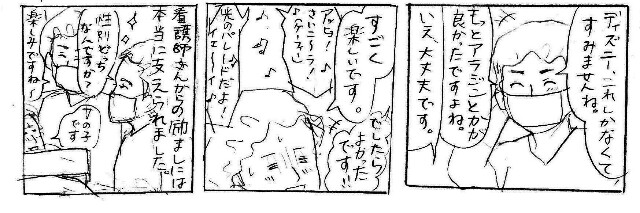 ディズニーこれしかなくて
すみませんね。
もっとアラジンとかが
良かったですよね。
いえ大丈夫です。
すごく
楽しいです。
でしたら
よかった
です!!
光のパレードだよ!
イェーイ
看護師さんからの励ましには
本当に支えられました。
性別どっち
なんですか?
楽しみですね〜
女の子
です